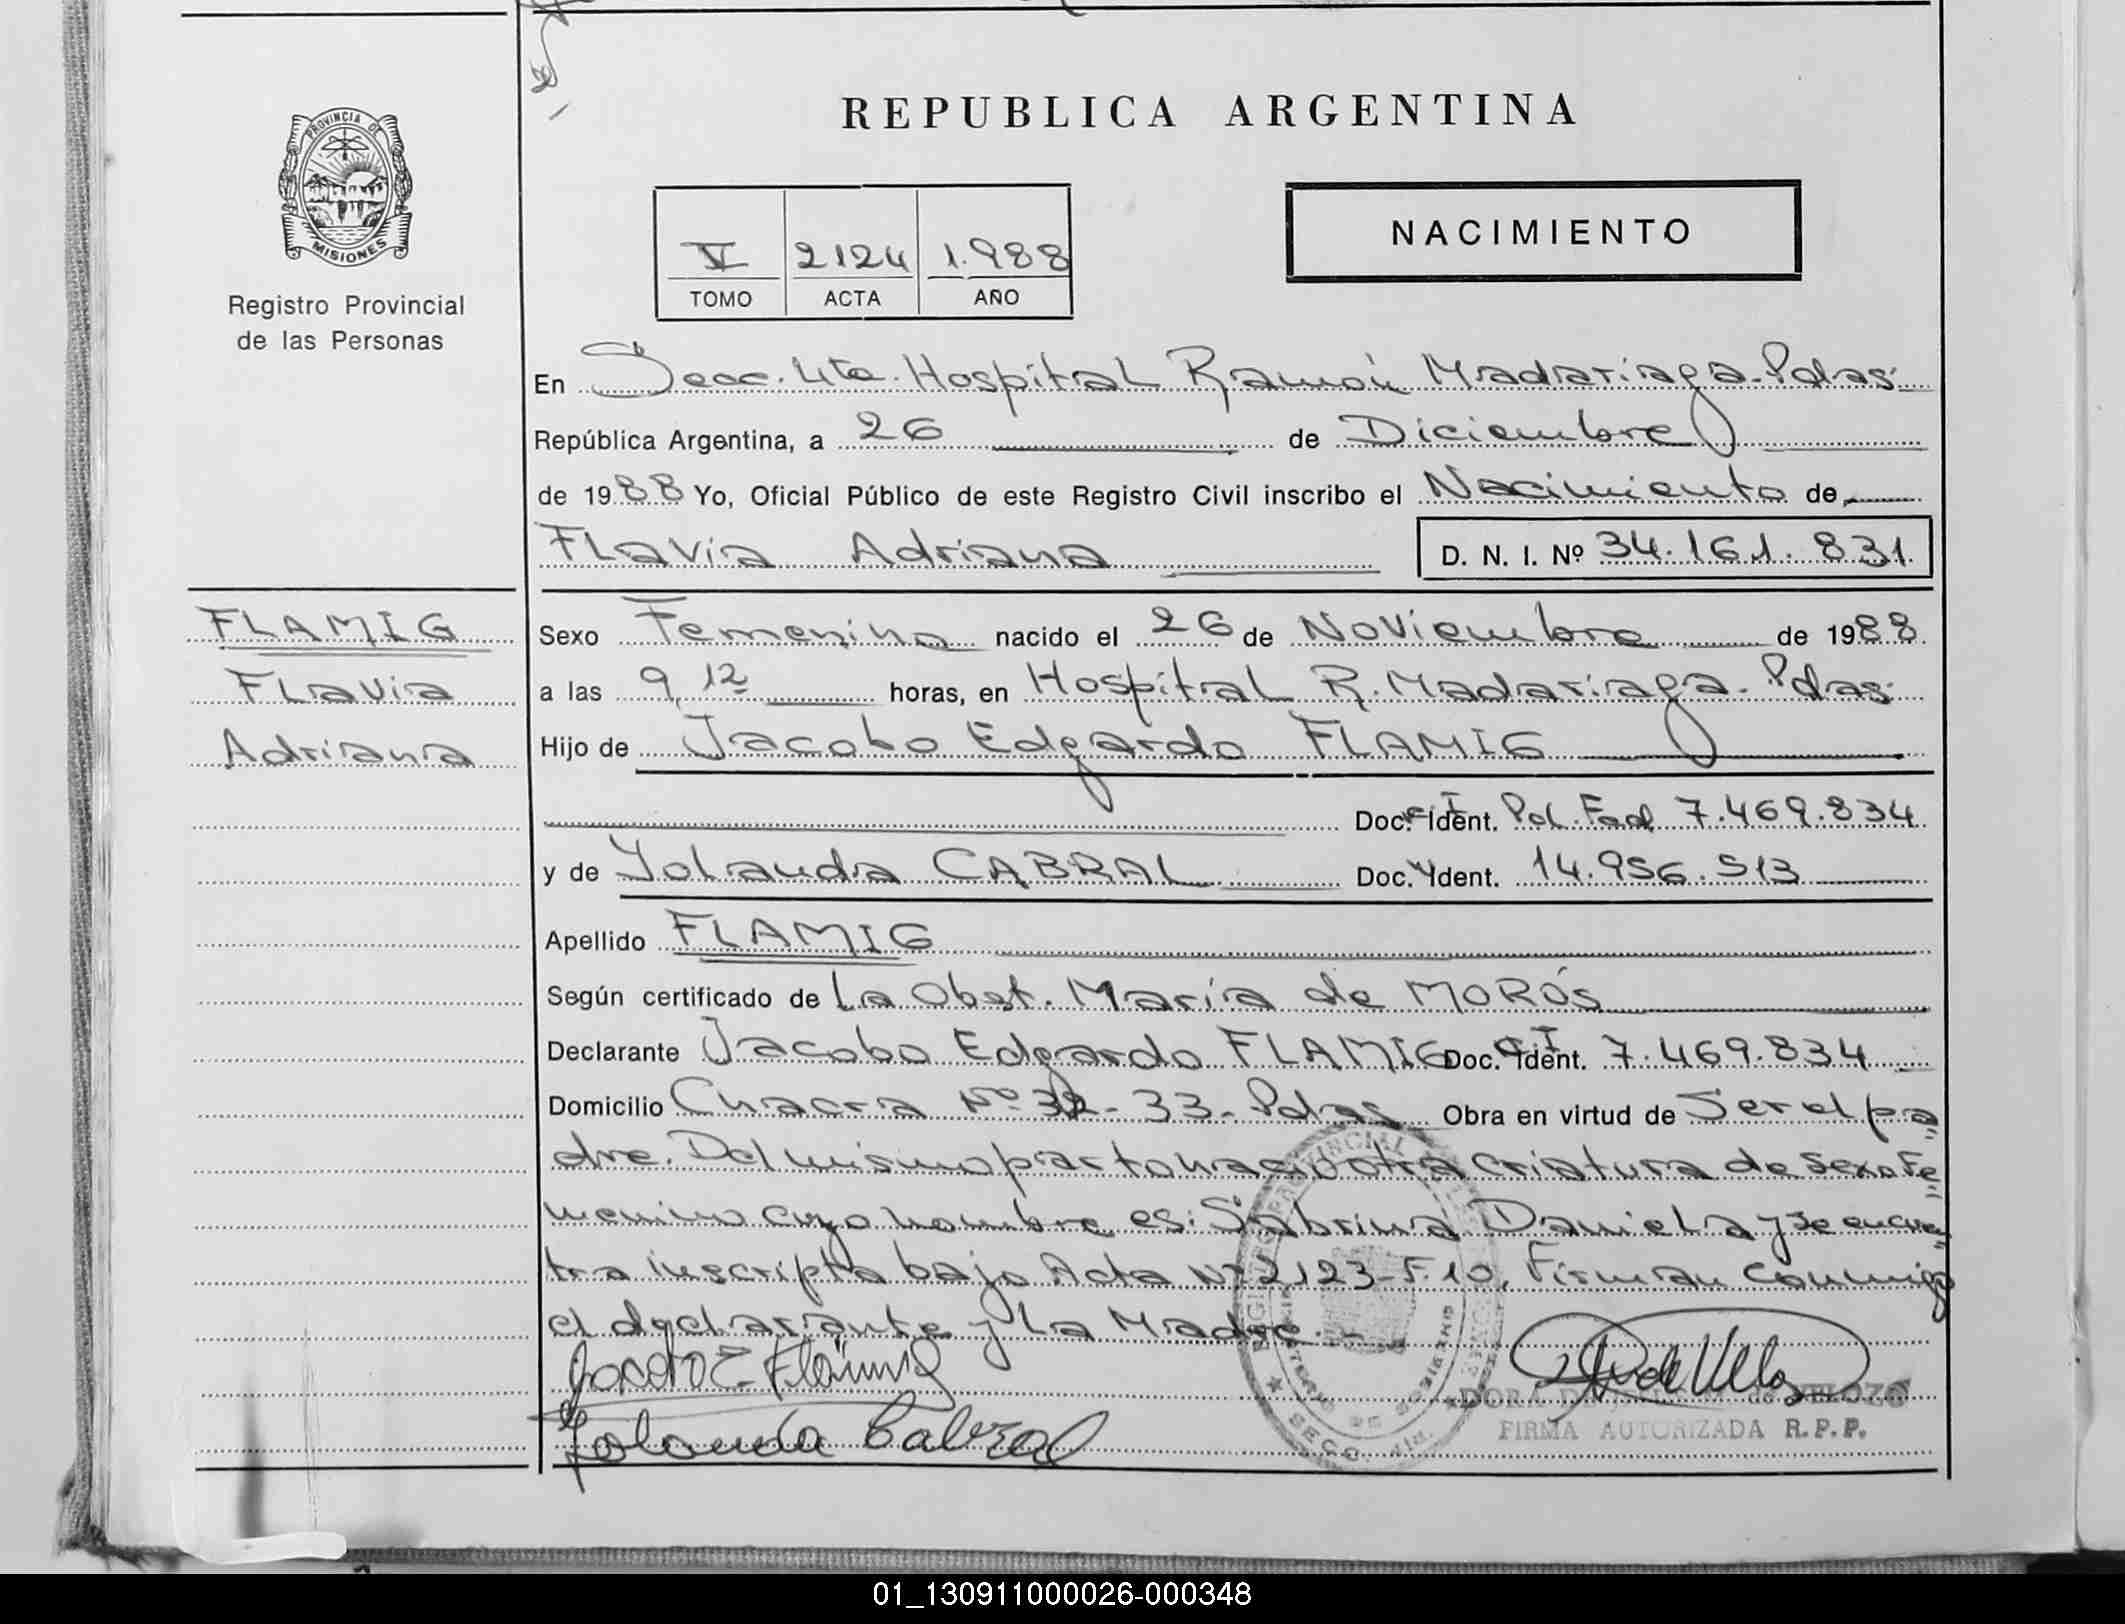 PROVINCIA DE
MISIONES
Registro Provincial
de las Personas
REPUBLICA ARGENTINA
V 2124 1.988
TOMO ACTA AÑO
NACIMIENTO
En Secc. 4ta. Hospital Ramón Madariaga. Pdas.
República Argentina, a 26 de Diciembre
de 1988 Yo, Oficial Público de este Registro Civil inscribo el Nacimiento de
FLavia Adriana D. N. I. Nº 34.161.831.
FLAMIG
FLavia
Adriana
Sexo Femenino nacido el 26 de Noviembre de 1988.
a las 9,12 horas, en Hospital R. Madariaga. Pdas.
Hijo de Jacobo Edgardo FLAMIG
Doc. C.I. Ident. Pol. Fed. 7.469.834
y de Yolanda CABRAL Doc. Ident. 14.956.513
Apellido FLAMIG
Según certificado de La Obst. María de MORÓS
Declarante Jacobo Edgardo FLAMIG Doc. C.I. Ident. 7.469.834
Domicilio Chacra Nº 32-33- Pdas Obra en virtud de Ser el pa=
dre. Del mismo parto nació otra criatura de sexo Fe=
menino cuyo nombre es: Sabrina Daniela y se encuen=
tra inscripta bajo Acta Nº 2123-F.10, Firman conmigo
el declarante y La Madre.-
Jacobo E. Flämig
Yolanda Cabral
DORA VELOZO
FIRMA AUTORIZADA R.P.P.
01_130911000026-000348